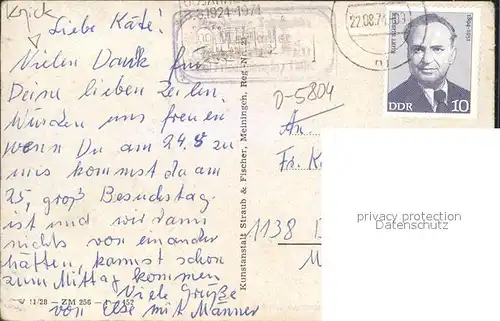 Liebe Käte!
Vielen Dank für
Deine lieben Zeilen.
Würden uns freuen
wenn Du am 24.8 zu
uns kommst da am
25. groß Besuchstag
ist und wir dann
nichts von einander
hätten, kannst schon
zum Mittag kommen
Viele Grüße
von Else mit Männer
1924-1974
22.08.74
1894-1951
DDR 10
D-5804
An
Fr. K
1138
Kunstanstalt Straub & Fischer, Meiningen, Reg Nr.
V 11/28 - ZM 256 - 452
privacy protection
Datenschutz